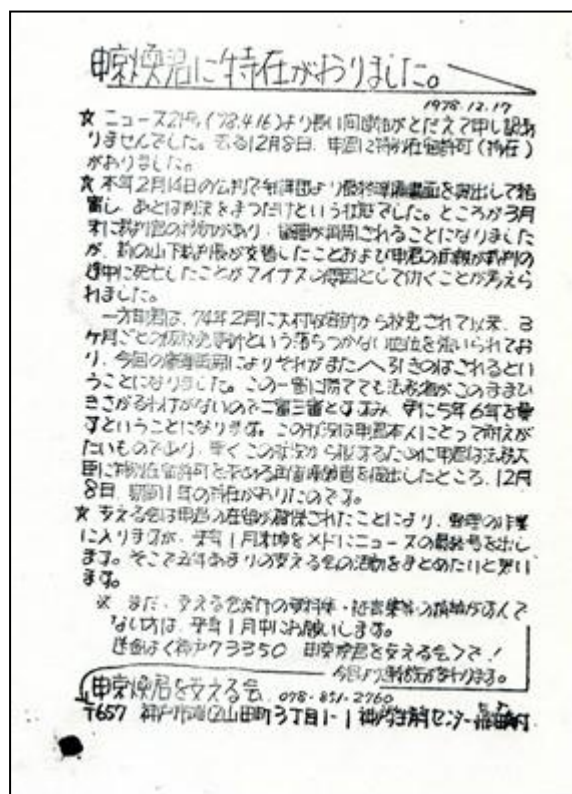 申京煥君に特在がおりました。
1978.12.17
☆ ニュース21号(78.4.16)より長い間連絡がとだえて申し訳あ
りませんでした。去る12月8日、申君に特別在留許可(特在)
がおりました。
☆ 本年2月14日の公判で弁護団より最終準備書面を提出して結
審し、あとは判決をまつだけという状態でした。ところが3月
末に裁判官の移動があり、審理が再開されることになりました
が、前の山下裁判長が交替したことおよび申君の 裁判の
途中に死亡したことがマイナスの要因として働くことが考えら
れました。
一方申君は、74年2月に大村収容所から放免されて以来、3
ヶ月ごとの仮放免更新という落ちつかない地位を強いられてお
り、今回の審理再開によりそれがまた 引きのばされるとい
うことになりました。この一審に勝てても法務省がこのままひ
きさがるわけがないので二審三審とすすみ、更に5年6年を要
すということになります。この状況は申君本人にとって耐えが
たいものであり、早くこの状況から脱するために申君は法務大
臣に特別在留許可を求める再審 を提出したところ、12月
8日、期間1年の特在がおりたのです。
☆ 支える会は申君の在留が確保されたことにより、整理の作業
に入りますが、来年1月末頃をメドにニュースの最終号を出し
ます。そこで五年あまりの支える会の活動をまとめたいと思い
ます。
※ まだ、支える会発行の資料集・証言集等の がすんで
ない方は、来年1月中にお願いします。
送金は<神戸73350 申京煥君を支える会>で!
今号より 変わります。
申京煥君を支える会 078-851-2760
〒657 神戸市灘区山田町3丁目1-1 神戸学生青年センター